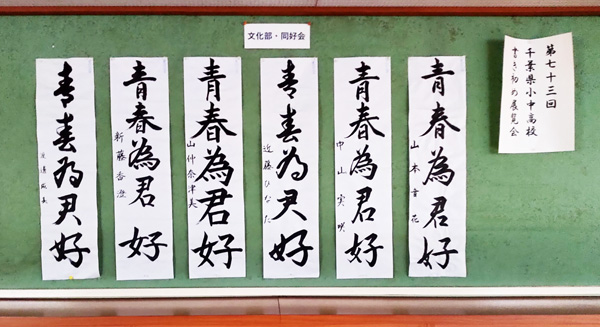 文化部・同好会
第七十三回
千葉県小中高校
書き初め展覧会
青春為君好
山本音花
青春為君好
中山実咲
青春為君好
近藤ひなた
青春為君好
山仲奈津美
青春為君好
新藤香澄
青春為君好